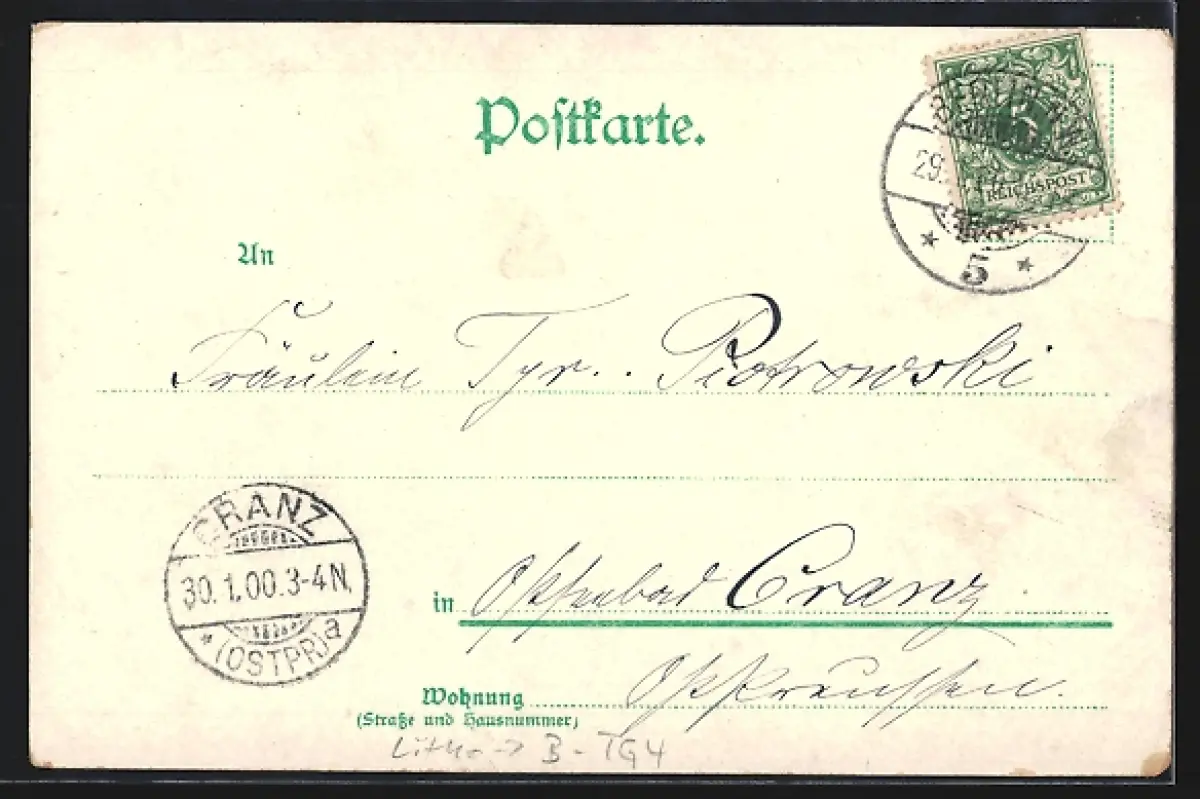 Postkarte.
5
REICHSPOST
29.
5
An
Fräulein Tyr.. Piotrowski
CRANZ
30.1.00.3-4N.
* (OSTPR) a
in Ostseebad Cranz
Wohnung Ostpreussen.
(Straße und Hausnummer)
Litho → B - TG4